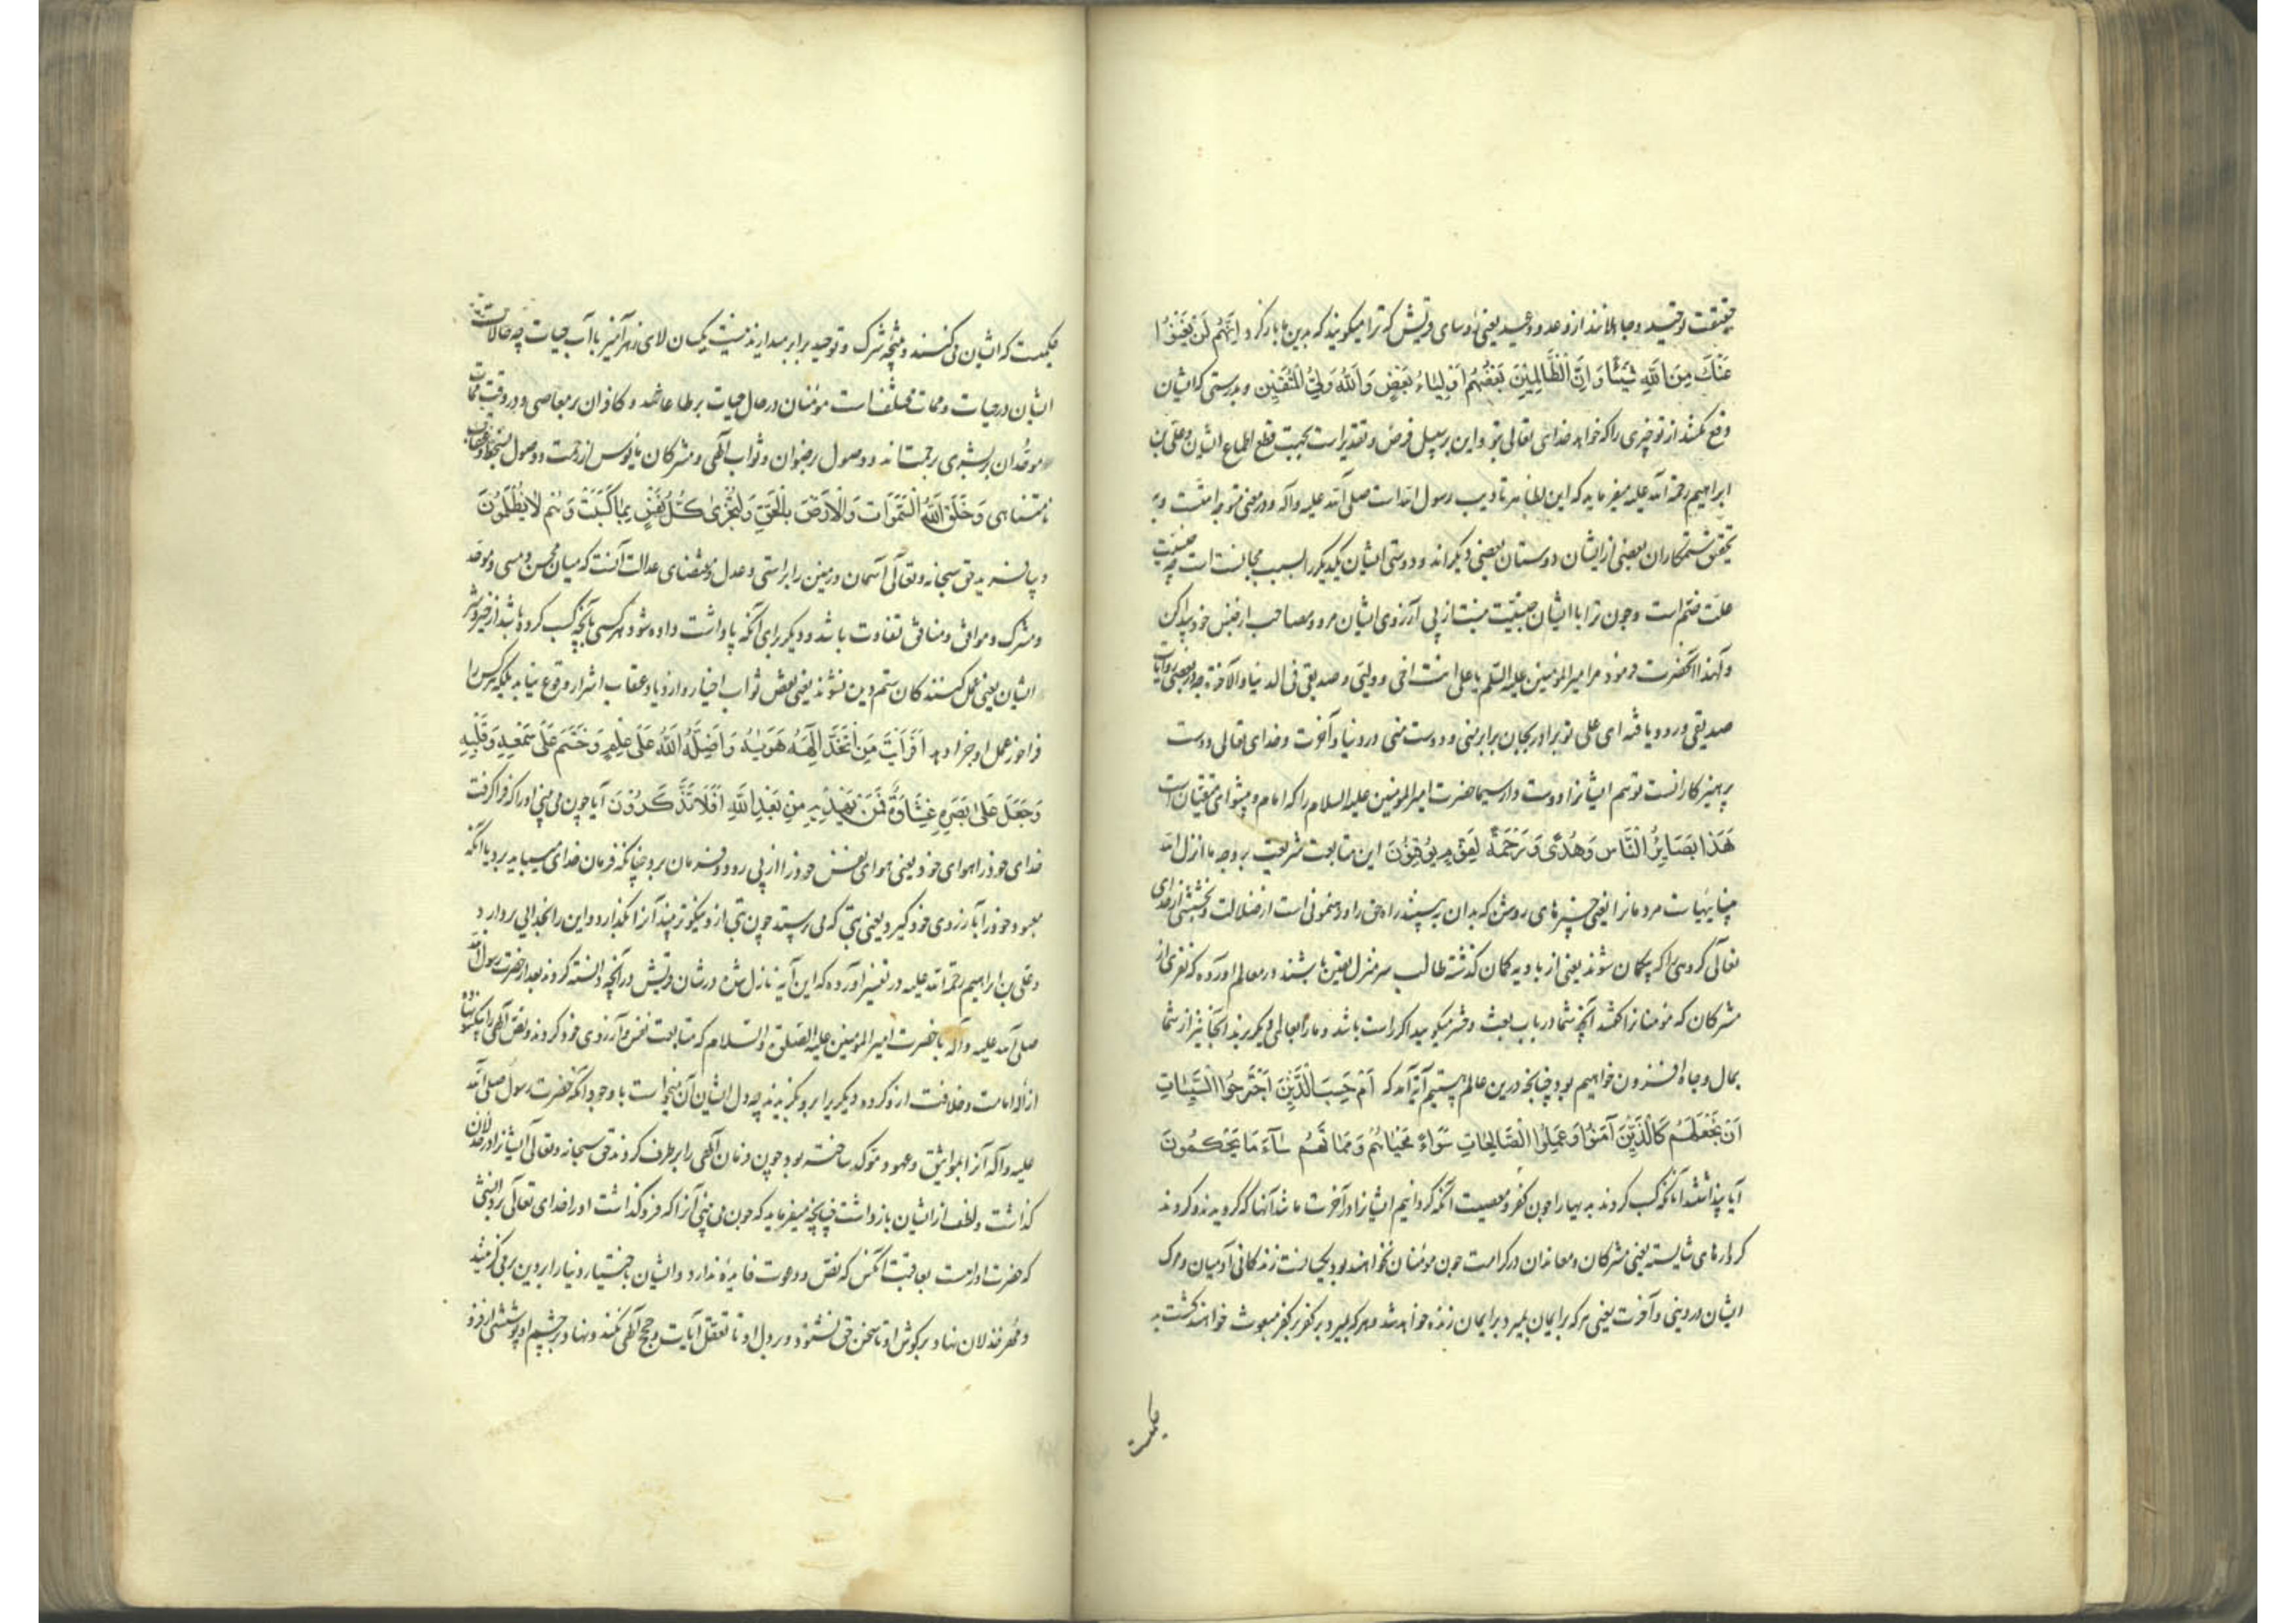 حقیقت توحید و جاهلانند از وعد و وعید یعنی رؤسای قریش که ترا میکویند که بدین ما بازکرد اِنَّهُم لَن یُغنُوا
عَنكَ مِنَ اللهِ شَیئًا وَ اِنَّ الظَّالِمِینَ بَعضُهُم اَولِیَاءُ بَعضٍ وَاللهُ وَلِیُّ المُتَّقِینَ و بدرستی که ایشان
دفع نکنند از تو چیزی را که خواهد خدای تعالی بتو و این بر سبیل فرض و تقدیر است بجهت قطع اطماع ایشان و علی بن
ابراهیم رحمة الله علیه میفرماید که این بظاهر تادیب رسول الله است صلی الله علیه وآله و در معنی متوجه امتست و به
تحقیق ستمکاران بعضی از ایشان دوستان بعضی دیکراند و دوستی ایشان یکدیکر را بسبب مجانست است چه جنسیت
علت ضمّ است و چون ترا با ایشان جنسیّت نیست از پی آرزوی ایشان مرو و مصاحب از جنس خود پیدا کن
ولهذا آنحضرت فرمود مر امیرالمومنین علیه السلم یا علی انت اخی و ولیّی و صدیقی فی الدنیا والآخرة و در بعضی روایات
صدیقی ورود یافته ای علی تو برادر بجان برابر منی و دوست منی در دنیا و آخرت و خدای تعالی دوست
پرهیزکارانست تو هم ایشانرا دوست دار سیما حضرت امیرالمومنین علیه السلام را که امام و پیشوای متقیان است
هَذَا بَصَایِرُ لِلنَّاسِ وَهُدًی وَ رَحمَةٌ لِقَومٍ یُوقِنُونَ این متابعت شریعت بروجه ما انزل الله
بیناییهاست مردمانرا یعنی چیزهای روشن که بدان ببینند راه حق را و رهنمونی است از ضلالت و بخششی از خدای
تعالی کروهی را که بیکمان شوند یعنی از بادیه کمان کذشته طالب سر منزل یقین باشند در معالم اورده که نفری از
مشرکان که مؤمنانرا کفتند آنچه شما در باب بعث و حشر میکویید اکر راست باشد و ما را بعالمی دیکر برند آنجا نیز از شما
بمال و جاه افزون خواهیم بود چنانچه درین عالم هستیم آیة آمد که اَم حَسِبَ الَّذِینَ اجتَرَحُوا السَّیِّئاتِ
اَن نَجعَلَهُم کَالَّذِینَ آمَنُوا وَ عَمِلُوا الصَّالِحَاتِ سَوَاءً مَحیَاهُم وَ مَمَاتُهُم سَاءَ مَا یَحکُمُونَ
آیا پنداشتند آنانکه کسب کردند بدیها را چون کفر و معصیت آنکه کردانیم ایشانرا در آخرت مانند آنها که کرویدند و کردند
کردارهای شایسته یعنی مشرکان و معاندان در کرامت چون مؤمنان نخواهند بود یکسانست زندکانی آدمیان و مرک
ایشان در دینی و آخرت یعنی هر که بر ایمان بمیرد بر ایمان زنده خواهد شد و هر که بمیرد بر کفر بر کفر مبعوث خواهند کشت بد
حکمیست
حکمیست که ایشان می کنند و نتیجه شرک و توحید برابر میدارند نیست یکسان لای زهرآمیز با آب حیات چه حالات
ایشان در حیات و ممات مختلفست مؤمنان در حال حیات بر طاعاتند و کافران بر معاصی و در وقت ممات
موحّدان بر بشری رحمتاند و وصول رضوان و ثواب الهی و مشرکان مایوس از رحمت و وصول بسخط و عقاب
نامتناهی وَ خَلَقَ اللهُ السَّمَوَاتِ وَالاَرضَ بِالحَقِّ وَ لِتُجزَی کُلُّ نَفسٍ بِمَا کَسَبَت وَهُم لَا یُظلَمُونَ
و بیافرید حق سبحانه وتعالی آسمان و زمین را براستی و عدل و مقتضای عدالت آنست که میان محسن و مسی و موحّد
و مشرک و موافق و منافق تفاوت باشد و دیکر برای آنکه پاداشت داده شود هر کسی بآنچه کسب کرده باشد از خیر و شر
ایشان یعنی عمل کنندکان ستم دیده نشوند یعنی نقص ثواب اخیار و ازدیاد عقاب اشرار وقوع نیابد بلکه هر کس را
فراخور عمل او جزا دهد اَفَرَاَیتَ مَنِ اتَّخَذَ اِلَهَهُ هَوَیهُ وَ اَضَلَّهُ اللهُ عَلَی عِلمٍ وَ خَتَمَ عَلَی سَمعِهِ وَ قَلبِهِ
وَ جَعَلَ عَلَی بَصَرِهِ غِشَاوَةً فَمَن یَهدِیهِ مِن بَعدِ اللهِ اَفَلَا تَذَکَّرُونَ آیا چون می بینی اورا که فرا کرفت
خدای خود را هوای خود یعنی هوای نفس خود را از پی رود و فرمان برد چنانکه فرمان خدای میباید برد یا آنکه
معبود خود را بآرزوی خود کیرد یعنی بتی که می پرستد چون بتی از و نیکوتر بیند آنرا بکذارد و این را بخدایی بردارد
و علی بن ابراهیم رحمة الله علیه در تفسیر آورده که این آیه نازل شده در شان قریش در آنچه دانسته کردند بعد از حضرت رسول الله
صلی الله علیه وآله با حضرت امیرالمومنین علیه الصلوة والسلام که متابعت نفس و آرزوی خود کردند و نص الهی را یکسو نهاده
ازاله امامت و خلافت ازو کرده دیکریرا برو بکزیدند چه دل ایشان آن میخواست با وجود آنکه حضرت رسول صلی الله
علیه وآله آنرا بمواثیق و عهود مؤکد ساخته بود چون فرمان الهی را برطرف کردند حق سبحانه وتعالی ایشانرا در خذلان
کذاشت و لطف از ایشان بازداشت چنانچه میفرماید که چون می بینی آنرا که فروکذاشت اورا خدای تعالی بر دانشی
که حضرت اوراست بعاقبت آنکس که نصّ و دعوت فایده ندارد و ایشان باختیار دنیا را بر دین برمی کزینند
و مُهر خذلان نهاد بر کوش او تا سخن حق نشنود و بر دل او تا تعقل آیات و حجج الهی نکند و نهاد بر چشم او پوششی از